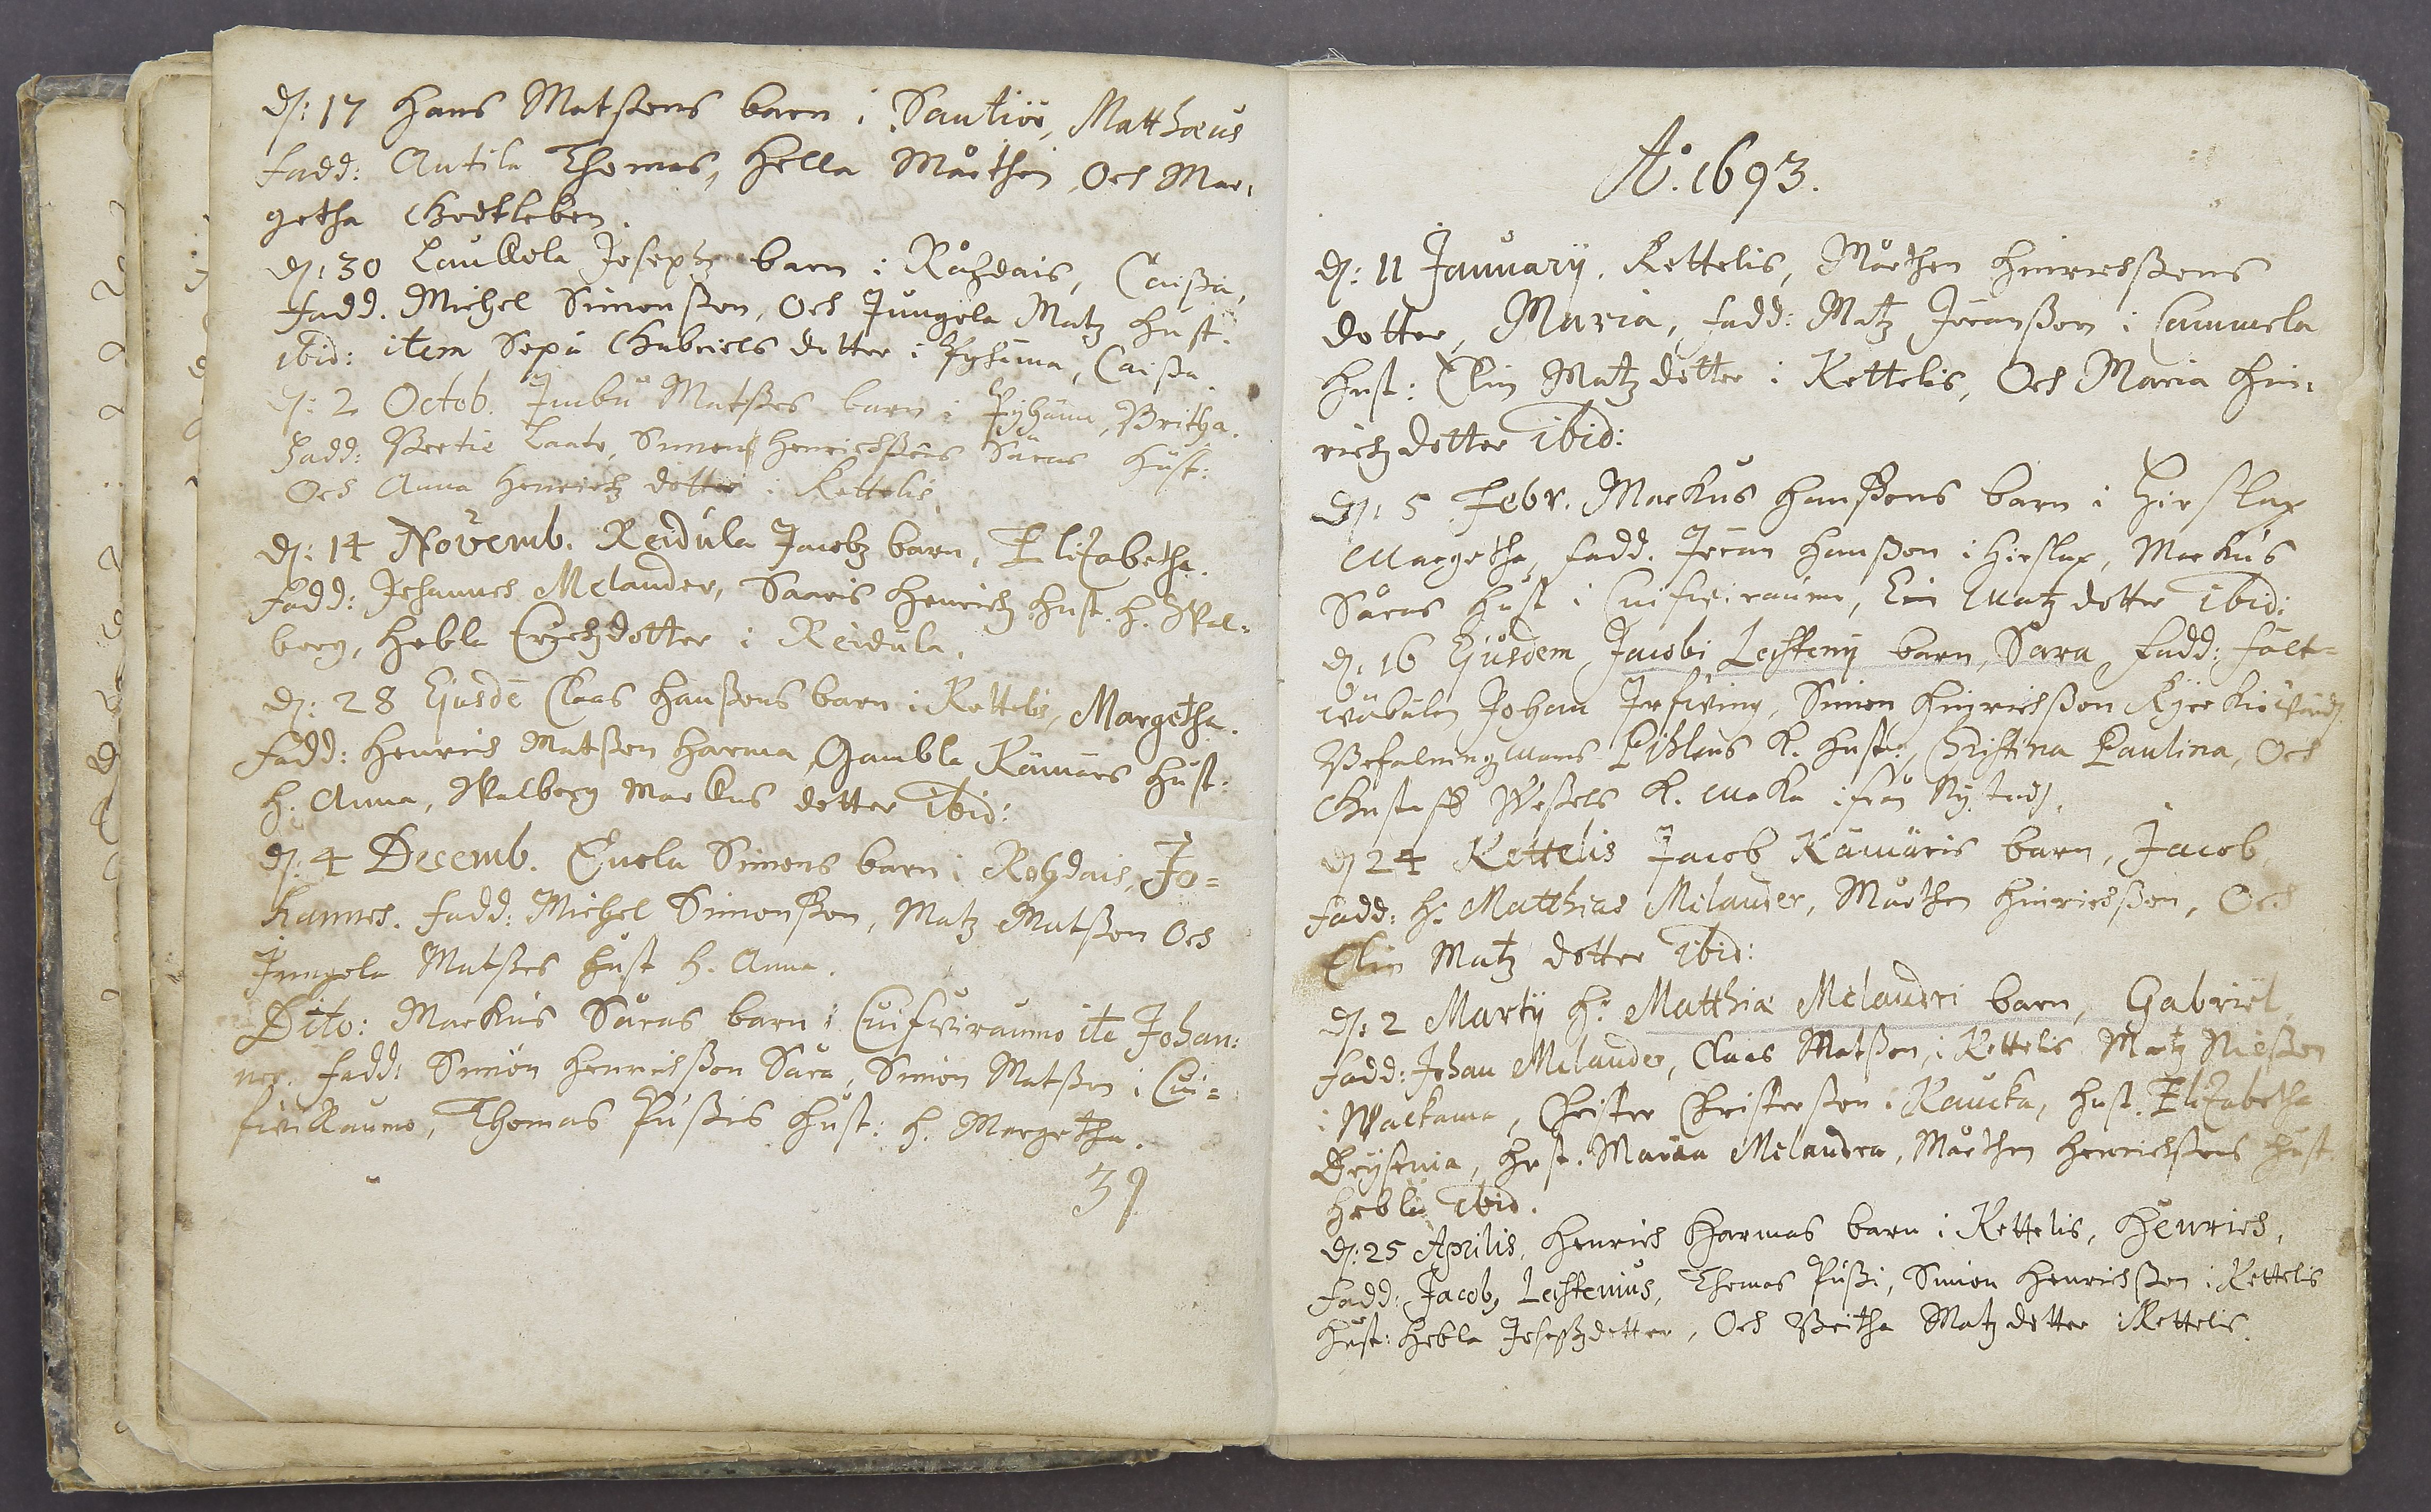 dn: 17 Hans Matßons barn i Santiöö, Matthæus
fadd: Antila Thomas, Hella Mårthen, Och Mar-
getha Godtleben.
dn: 30 Laukola Josephz barn i Råhdais, Caisa,
fadd. Michel Simonsson, Och Jungola Matz Hust.
ibid: item Sepä Gabriels dotter i Pyhäma, Caisa.
dn: 2 Octob. Matßes barn i Pyhäma, Britha.
Fadd: Bertil Laato, Simon Henrichßons Saras Hust:
Och Anna Henrichz dotter i Kettelis
dn: 14 Novemb. Reidula Jacobz barn, Elisabetha.
fadd: Johannes Melander, Saaris Henrichz Hust. H. Wal-
borg, Hebla Erichzdotter i Reidula.
dn: 28 Ejusdē Claas Hanßons barn i Kettelis, Margetha.
Fadd: Henrich Matßon Harma, Gambla Kämäris Hust:
H. Anna, Walborg Markus dotter ibid:
dn: 4 Decemb. Cuola Simons barn i Rohdais, Jo-
hannes. fadd: Michel Simonßon, Matz Matßon Och
Jungola Matßes Hust H. Anna.
Dito: Markus Såras barn i Cuifwiraumo ite Johan:
nes. fadd: Simon Henrichßon Såra, Simon Matßon i Cui-
fwiRaumo, Thomas Pußis Hust: H. Margetha.
39
Ao. 1693.
dn: 11 January. Kettelis, Mårthen Hinrichßons
dotter, Maria, fadd: Matz Jöranßon i Cammela
Hust: Elin Matz dotter i Kettelis, Och Maria Hin-
richz dotter ibid:
dn: 5 Febr. Markus Hanßons barn i Hirslax
Margetha, fadd. Jöran Hanßon i Hirslax, Markus
Såras Hust i Cuifwiraumo, Elin Matz dotter ibid:
dn: 16 Ejusdem Jacobi Lechteny barn, Sara, Fadd: fält-
wäbelen Johan Jerfwing, Simon Hinrichßon Kyrkiowärd,
Befalningzmans Pihlens K. Hustro, Christina Paulina, Och
Gustaff Weßels K. Maka ifrån Nystad.
dn 24 Kettelis Jacob Kämäris barn, Jacob,
fadd: Hr Matthias Melander, Mårthen Hinrichßon, Och
Elin Matz dotter ibid:
dn: 2 Marty Hr Matthiæ Melandri barn, Gabriel,
fadd: Johan Melander, Claas Matßon i Kettelis Matz Nilßon
i Walkama, Christer Christerßon i Kaucka, Hust. Elisabetha
Brysenia, Hust. Maria Melandra, Mårthen Henrichßons Hust.
Hebla ibid.
dn: 25 Aprilis, Henrich Harmas barn i Kettelis, Henrich,
fadd: Jacob, Lechtenius, Thomas Pußi, Simon Henrichßon i Kettelis
Hust: Hebla Josephzdotter, Och Britha Matz dotter i Kettelis.